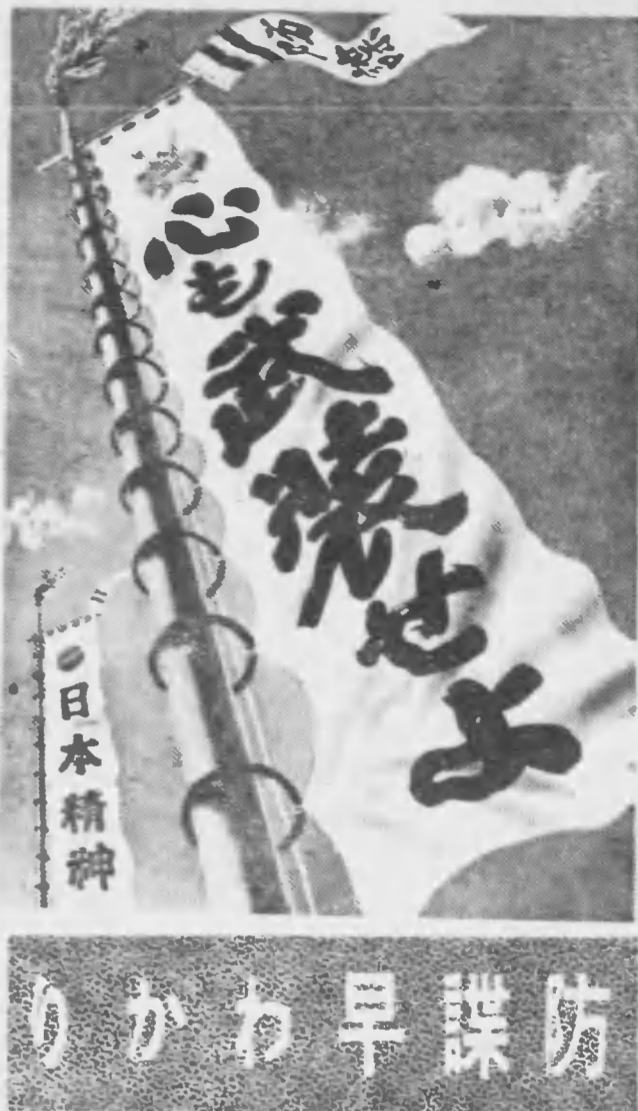 防諜
心も武装せよ
日本精神
防諜早わかり